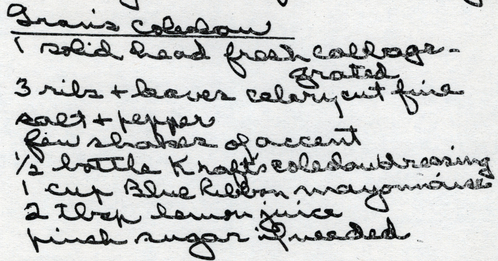 Fran's Coleslaw
1 solid head fresh cabbage -
grated
3 ribs + leaves celery cut fine
salt + pepper
few shakes of accent
1/2 bottle Kraft's coleslaw dressing
1 cup Blue Ribbon mayonnaise
2 tbsp lemon juice
pinch sugar if needed